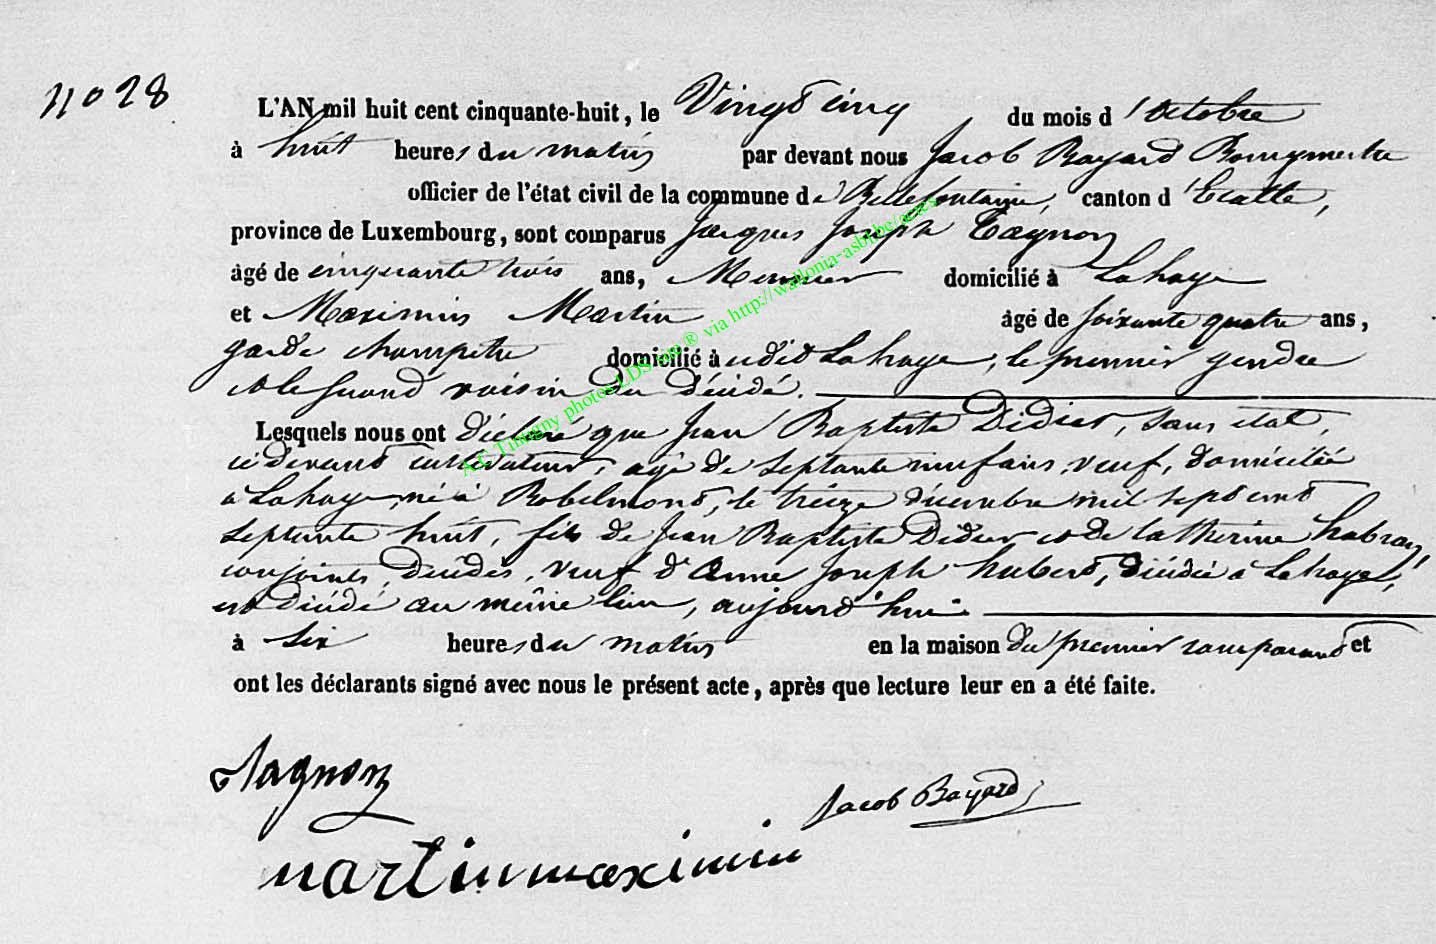 no 28
L'AN mil huit cent cinquante-huit, le Vingt cinq du mois d'octobre
à huit heures du matin par devant nous Jacob Bayard Bourgmestre
officier de l'état civil de la commune de Bellefontaine, canton d'Etalle,
province de Luxembourg, sont comparus Jacques Joseph Tagnon
âgé de cinquante trois ans, Meunier domicilié à Lahage
et Maximin Martin âgé de soixante quatre ans,
garde champêtre domicilié à udit Lahage, le premier gendre
et le second voisin du décédé.
Lesquels nous ont déclaré que Jean Baptiste Didier, sans état,
ci devant cultivateur, agé de septante neuf ans, veuf, domicilié
à Lahage, né à Robelmont, le treize décembre mil sept cent
septante huit, fils de Jean Baptiste Didier et de Catherine habray,
conjoints, décédés, veuf d'Anne Joseph hubert, décédée à Lahage,
est décédé au même lieu, aujourd'hui
à six heures du matin en la maison du premier comparant et
ont les déclarants signé avec nous le présent acte, après que lecture leur en a été faite.
Tagnon
Jacob Bayard
martin maximin
AC Tintigny photos LDS via http://wallonia-asbl.be/actes